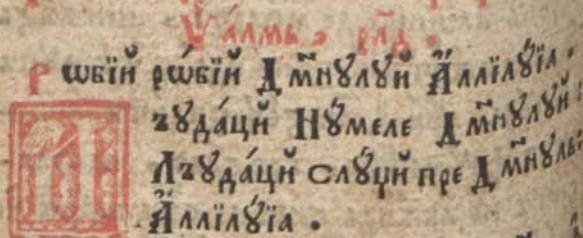 Ѱалмь. рл҃д.
рѡбїй рѡ́бїи Дм҃нꙋлꙋй А҆ллїлꙋ́їа.
Лъꙋда́ци Нꙋ́меле Дм҃нꙋлꙋй
Лъꙋда́ци слꙋ́ци пре Дм҃нꙋль.
А҆ллїлꙋ́їа.